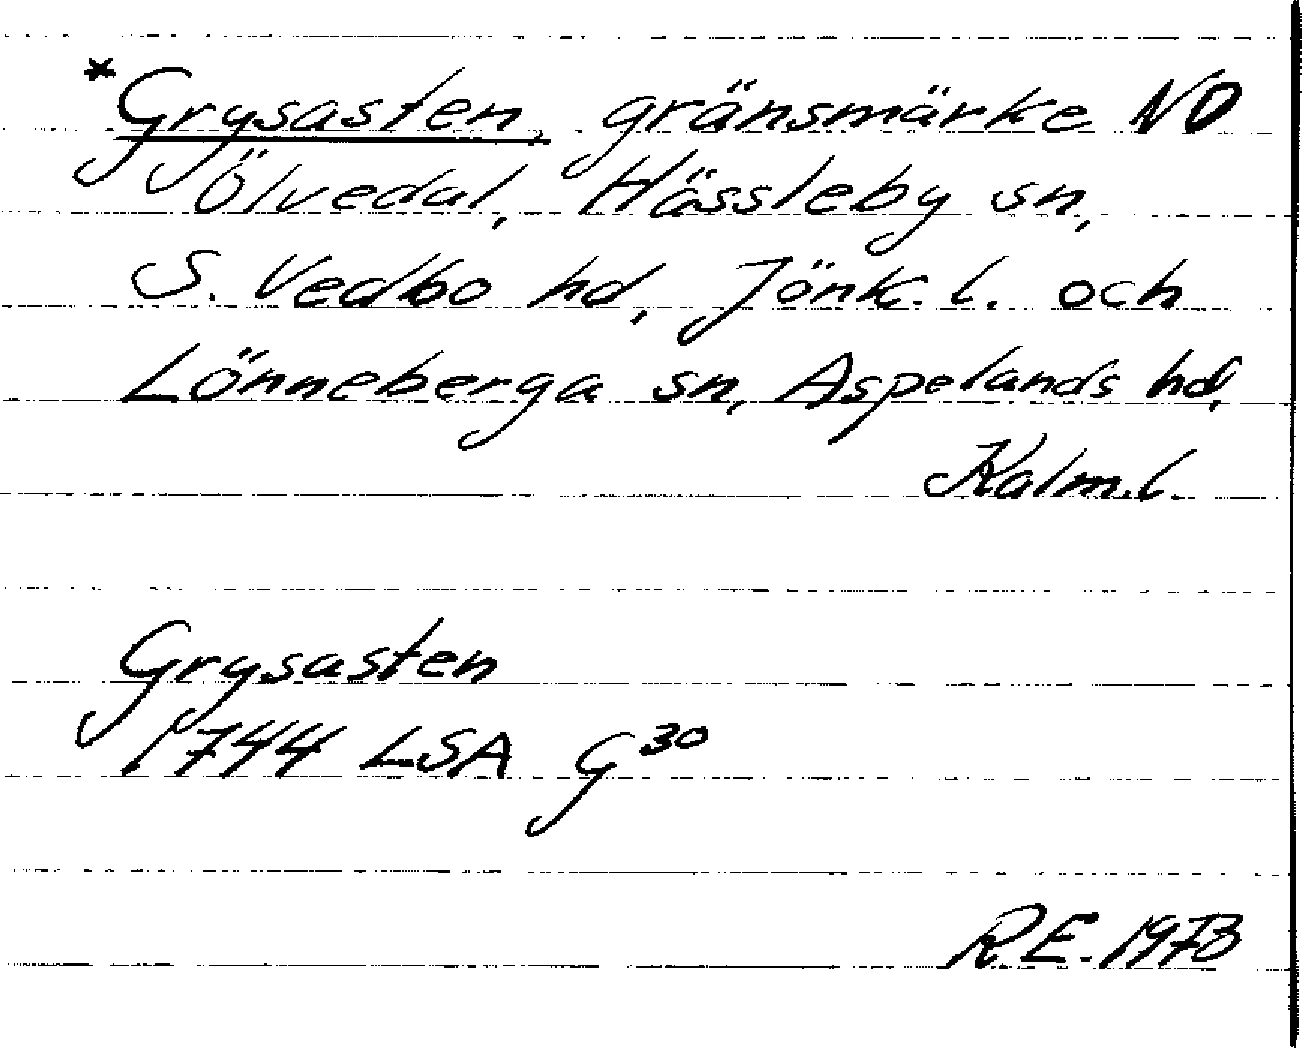 *Grysasten, gränsmärke NO
Ölvedal, Hässleby sn,
S. Vedbo hd, Jönk. l. och
Lönneberga sn, Aspelands hd,
Kalm. l.
Grysasten
1744 LSA G30
R.E. 1973